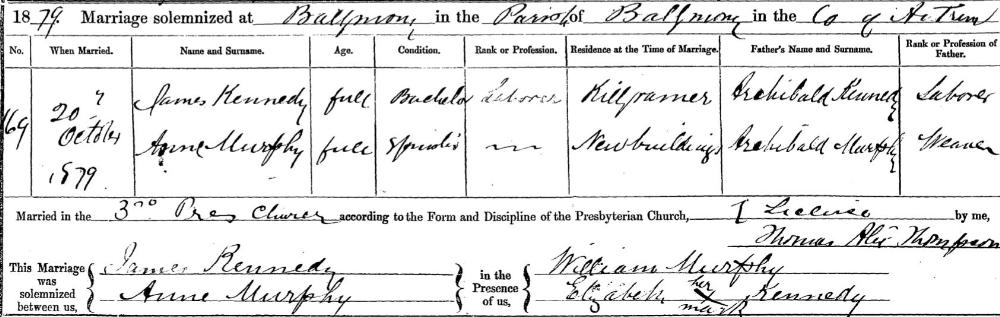 1879 Marriage solemnized at Ballymony in the Parish of Ballymony in the Co of Antrim
No. When Married. Name and Surname. Age. Condition. Rank or Profession. Residence at the Time of Marriage. Father's Name and Surname. Rank or Profession of Father.
169 20" October 1879. James Kennedy full Bachelor Laborer Killgramer Archibald Kennedy Laborer
Anne Murphy full Spinster — Newbuildings Archibald Murphy Weaver
Married in the 3rd Pres Church according to the Form and Discipline of the Presbyterian Church, License by me,
Thomas Alex Thompson
This Marriage was solemnized between us, James Kennedy in the Presence of us, William Murphy
Anne Murphy Elizabeth her x mark Kennedy